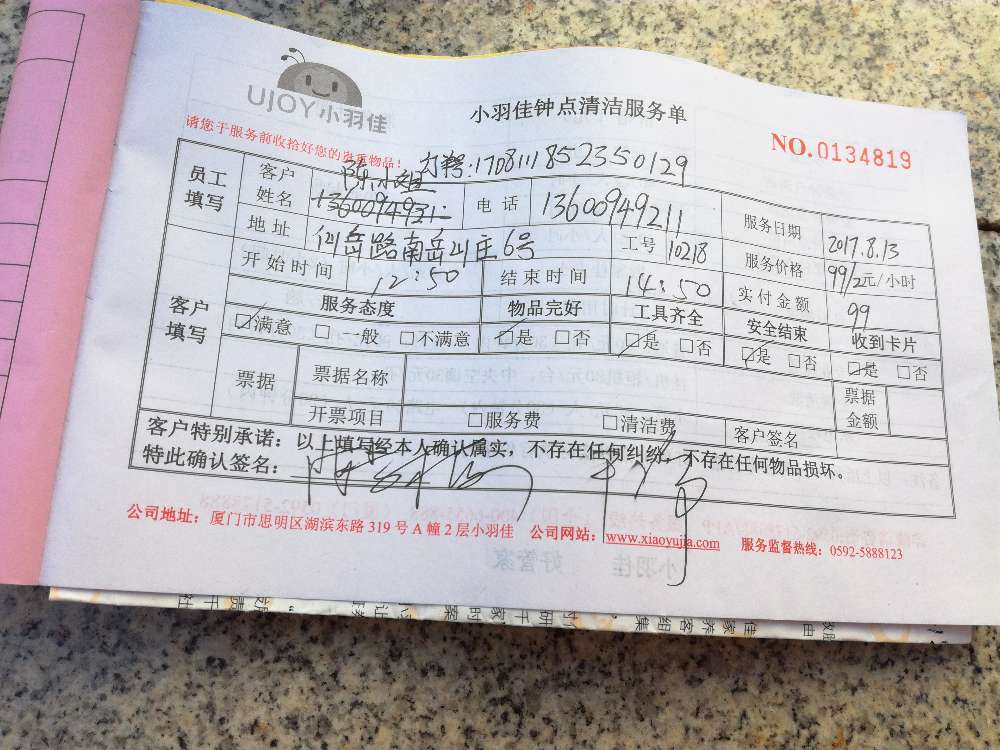 UJOY小羽佳
小羽佳钟点清洁服务单
NO.0134819
请您于服务前收拾好您的贵重物品!
员工填写 客户姓名 陈小姐 13600949211 电话 13600949211 服务日期 2017.8.13
1708111852350129
地址 仙岳路南岳山庄6号 工号 10218 服务价格 99/2元/小时
开始时间 12:50 结束时间 14:50 实付金额 99
客户填写 服务态度 物品完好 工具齐全 安全结束 收到卡片
☑满意 □一般 □不满意 ☑是 □否 ☑是 □否 ☑是 □否 ☑是 □否
票据 票据名称 票据金额
开票项目 □服务费 □清洁费 客户签名
客户特别承诺:以上填写经本人确认属实,不存在任何纠纷,不存在任何物品损坏。
特此确认签名:
公司地址:厦门市思明区湖滨东路319号A幢2层小羽佳 公司网站:www.xiaoyujia.com 服务监督热线:0592-5888123